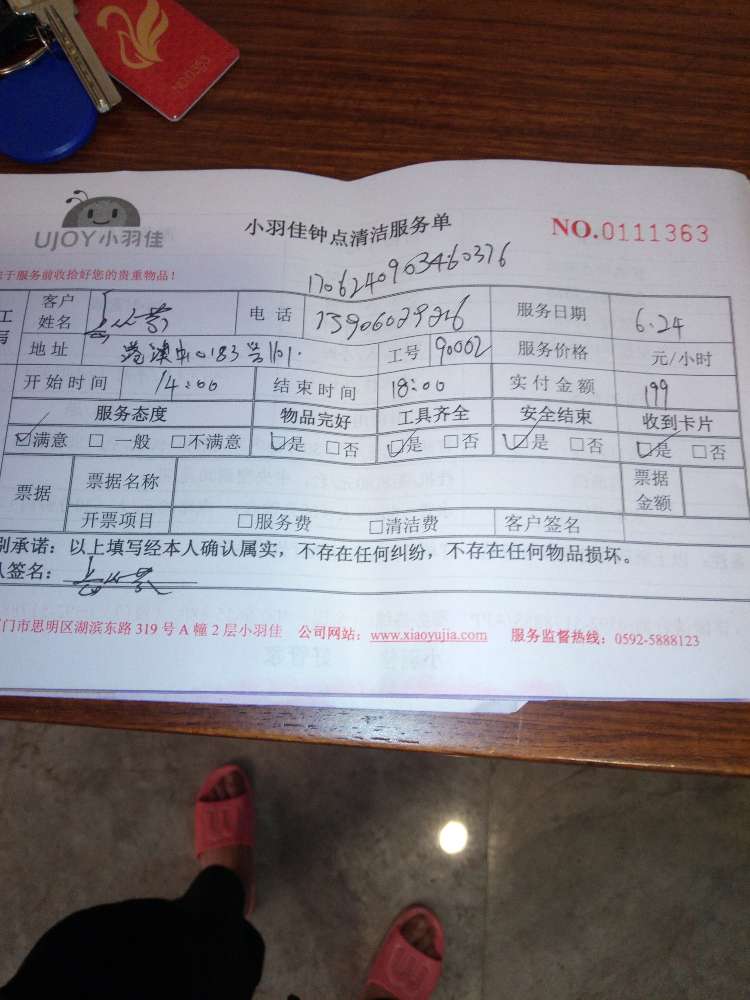 UJOY小羽佳
小羽佳钟点清洁服务单
NO.0111363
于服务前收拾好您的贵重物品！
1706240903460376
客户姓名
电话
服务日期 6.24
地址 港澳中心183号1101.
工号 90002
服务价格 元/小时
开始时间 14:00
结束时间 18:00
实付金额 199
服务态度 物品完好 工具齐全 安全结束 收到卡片
☑满意 □一般 □不满意 ☑是 □否 ☑是 □否 ☑是 □否 ☑是 □否
票据 票据名称 票据金额
开票项目 □服务费 □清洁费 客户签名
别承诺：以上填写经本人确认属实，不存在任何纠纷，不存在任何物品损坏。
签名：
门市思明区湖滨东路 319 号 A 幢 2 层小羽佳 公司网站：www.xiaoyujia.com 服务监督热线：0592-5888123